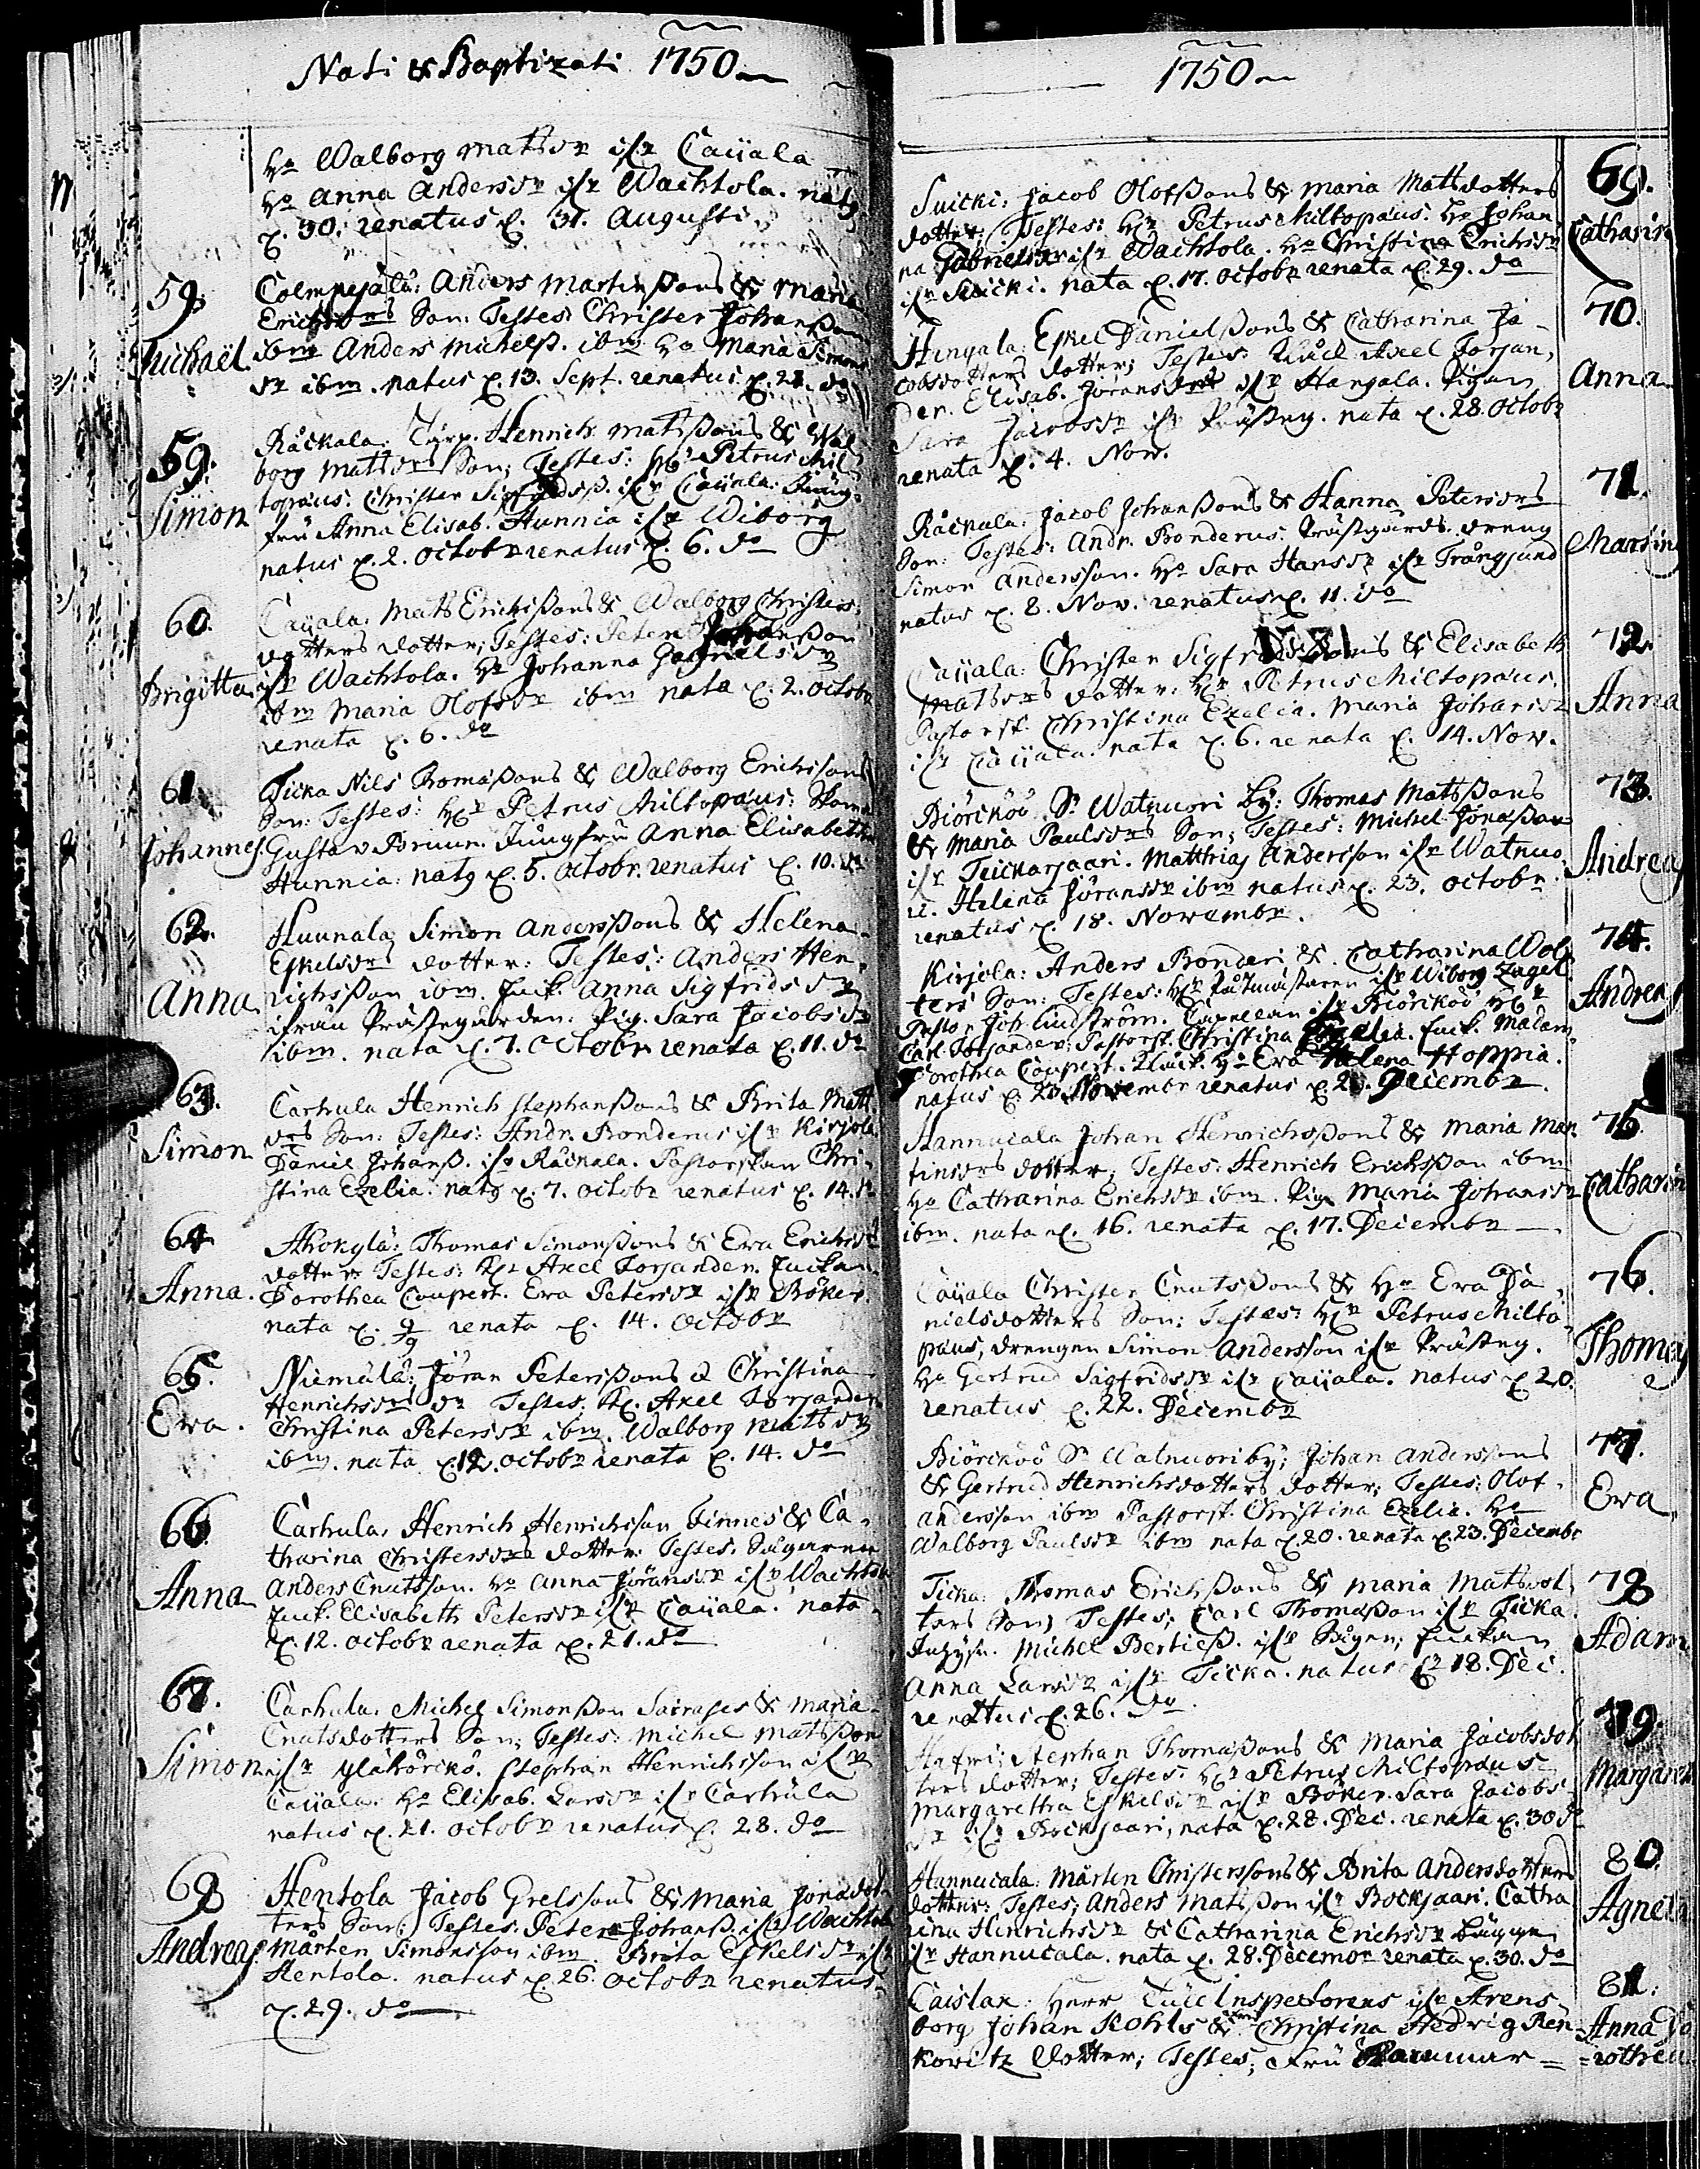 Nati & Baptizati 1750
Ho Walborg matsdr ifr Caijala
Ho Anna Andersdr ifr Wachtola. nat9
d. 30. renatus d. 31. Augusti
59. Colmpesälä: Anders Martinßons & Maria
Erichsdrs Son: Testes: Christer Johanßon
Michaël. ibm Anders Michelß. ibm Ho Maria Simons
dr ibm. natus d. 13. Sept. renatus d. 21. do
59. Råckala. Henrich Matsßons & Wal
borg Matsdrs Son; Testes: HEr Petrus Mil
Simon topæus: Christer Sigfridsß. ifr Caijala. Jung
fru Anna Elisab. Hunnia ifr Wiborg
natus d. 2. octobr renatus d. 6. do
60. Caijala. Mats Erichsßons & Walborg Christers
dotters dotter; Testes: Peter Johanßon
Brigitta. ifr Wachtola. Ho Johanna Gabrielsdr
ibm Maria Olofsdr ibm nata d. 2. octobr
renata d. 6. do
61. Ticka Nils Thomaßons & Walborg Erichsdrs
Son: Testes: HEr Petrus Miltopæus:
Johannes. Gustav Brunn. Jungfru Anna Elisabetha
Hunnia: nat9 d. 5. octobr. renatus d. 10. do
62. Huunala; Simon Andersßons & Helena
Eskelsdrs dotter: Testes: Anders Hen
Anna richsßon ibm. Enck. Anna Sigfridsdr
ifrån Prästegården. Pig. Sara Jacobsdr
ibm. nata d. 7. octobr renata d. 11. do
63. Carhula Henrich Stephanßons & Brita Mats
drs Son: Testes: Andr. Bonderus ifr Kirjola
Simon Daniel Johanß. ifr Råckala. Pastorskan Chri
stina Ezelia. nat9 d. 7. octobr renatus d. 14. do
64. Ahokylä: Thomas Simonßons & Ewa Erichsdrs
dotter Testes: Axel Forjander. Enckan
Anna. Dorothea Coupert. Ewa Petersdr ifr Röker.
nata d. 9 renata d. 14. octobr
65. Niemälä: Jöran Petersßons & Christina
Henrichsdrs dr Testes: Axel Forjander
Ewa. Christina Petersdr ibm. Walborg Matsdr
ibm. nata d. 12. octobr renata d. 14. do
66. Carhula. Henrich Henrichson Tinnes & Ca
tharina Christersdrs dotter. Testes.
Anna Anders Cnutsson. Ho Anna Jöransdr ifr Wachtola
Enck. Elisabeth Petersdr ifr Caijala. nata
d. 12. octobr renata d. 21. do
67. Carhula. Michel Simonßon & Maria
Cnutsdotters Son; Testes: Michel Matsßon
Simon ifr Yläkörckö. Stephan Henrichsson ifr
Caijala. Ho Elisab. Larsdr ifr Carhula
natus d. 21. octobr renatus d. 28. do
68 Hentola Jacob Grelssons & Maria Jonædot
ters Son; Testes. Peter Johanß. ifr Wachtola
Andreas. Mårten Simonsson ibm Brita Eskelsdr ifr
Hentola. natus d. 26. octobr renatus
d. 29. do
1750
Suicki: Jacob Olofßons & Maria Matsdotters 69.
dotter; Testes: HEr Petrus Miltopæus. Ho Johan Catharina
na Gabrielsdr ifr Wachtola. Ho Christina Erichsdr
ifr Suicki. nata d. 17. octobr renata d. 29. do
Hingala: Eskel Danielßons & Catharina Ja 70.
cobsdotters dotter; Testes: Axel Forjan,
der. Elisab. Jöransdr ifr Hangala. Pigan Anna
Sara Jacobsdr ifr Prästeg. nata d. 28. octobr
renata d. 4. Nov.
Råckala: Jacob Johanßons & Hanna Petersdrs 71.
Son: Testes: Andr. Bonderus. Prästgårds dreng Martin
Simon Andersson. Ho Sara Hansdr ifr Trångsund
natus d. 8. Nov. renatus d. 11. do
Caijala: Christer Sigfridsßons & Elisabeth 72.
Matsdrs dotter: HEr Petrus Miltopæus.
Pastorsk. Christina Ezelia. Maria Johansdr Anna
ifr Caijala nata d. 6. renata d. 14. Nov.
Biörcköö Sn Watnuori by: Thomas Matsßons 73.
& Maria Paulsdrs Son; Testes: Michel Jonaßon
ifr Tuickarjaari. Matthias Andersson ifr Watnuo Andreas
ri. Helena Jöransdr ibm natus d. 23. octobr
renatus d. 18. Novembr.
Kirjola: Anders Bonderi & Catharina Wol 74.
ters Son: Testes: HEr Rådmästaren ifr Wiborg
Johan Lindström. Capellan ifr Biörcköö HEr Andreas
Carl Forsander; Pastorsk. Christina Ezelia. Enck. Madam
Dorothea Coupert. Ho Ewa Helena Hoppia.
natus d. 20 Novembr renatus d. 2. Decembr.
Hannucala Johan Henrichsßons & Maria Mar 75.
tinsdrs dotter; Testes: Henrich Erichsßon ibm
Ho Catharina Erichsdr ibm. Pig. Maria Johansdr Catharina
ibm. nata d. 16. renata d. 17. Decembr
Caijala Christer Cnutsßons & Ho Ewa Da 76.
nielsdotters Son: Testes: HEr Petrus Milto
pæus, drengen Simon Andersson ifr Prästeg. Thomas
Ho Gertrud Sigfridsdr ifr Caijala. natus d. 20.
renatus d. 22. Decembr
Biörcköö Sn Watnuori by; Johan Anderssons 77.
& Gertrud Henrichsdotters dotter; Testes: Olof
Andersson ibm Pastorsk. Christina Ezelia. Ho Ewa
Walborg Paulsdr ibm nata d. 20. renata d. 23. Decembr
Ticka: Thomas Erichßons & Maria Matsdot 78
ters Son; Testes; Carl Thomaßon ifr Ticka
Michel Bertilß. ifr Enckan Adam
Anna Larsdr ifr Ticka. natus d. 18. Dec.
renatus d. 26. do
Hatri: Stephan Thomaßons & Maria Jacobsdot 79.
ters dotter; Testes. HEr Petrus Miltopæus
Margaretha Eskelsdr ifr Röker. Sara Jacobs Margareta
dr ifr Rockjaari, nata d. 28. Dec. renata d. 30 do
Hannucala: Mårten Christerssons & Brita Andersdotters 80.
dotter: Testes; Anders Matsßon ifr Rockjaari. Catha
rina Hinrichsdr & Catharina Erichsdr bägge Agneta
ifr Hannucala. nata d. 28. Decembr renata d. 30. do
Caislax: Herr Tull Inspectorens ifr Arens 81.
borg Johan Kohls & Fru Christina Hedvig Ren Anna Do
kowitz dotter; Testes; Fru =rothea